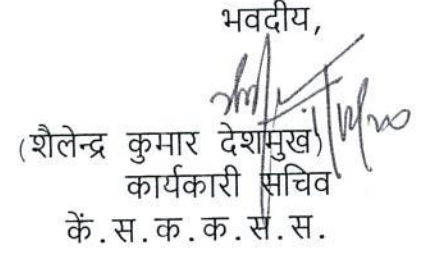 भवदीय,
(शैलेन्द्र कुमार देशमुख)
कार्यकारी सचिव
कें.स.क.क.से.स.